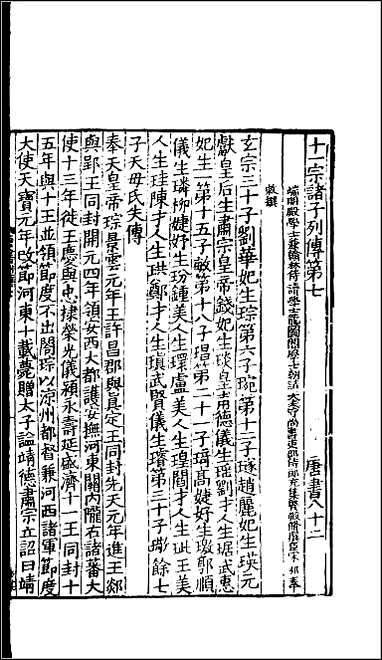 十一宗諸子列傳第七　唐書八十二
端明殿學士兼翰林侍讀學士龍圖閣學士朝請大夫守尚書吏部侍郎充集賢殿脩撰臣宋祁奉
敕撰
玄宗三十子劉華妃生琮第六子琬第十二子璲趙麗妃生瑛元
獻皇后生肅宗皇帝錢妃生琰皇甫德儀生瑤劉才人生琚武惠
妃生一第十五子敏第十八子瑁第二十一子琦高婕妤生璬郭順
儀生璘柳婕妤生玢鍾美人生環盧美人生瑝閻才人生玼王美
人生珪陳才人生珙鄭才人生瑱武賢儀生璿第三十子璥餘七
子夭母氏失傳
奉天皇帝琮景雲元年王許昌郡與真定王同封先天元年進王郯
與郢王同封開元四年領安西大都護安撫河東關內隴右諸蕃大
使十三年徙王慶與忠棣榮光儀潁永壽延盛濟十一王同封十
五年與十王並領節度不出閤琮以涼州都督兼河西諸軍節度
大使天寶元年改節河東十載薨贈太子謚靖德肅宗立詔曰靖